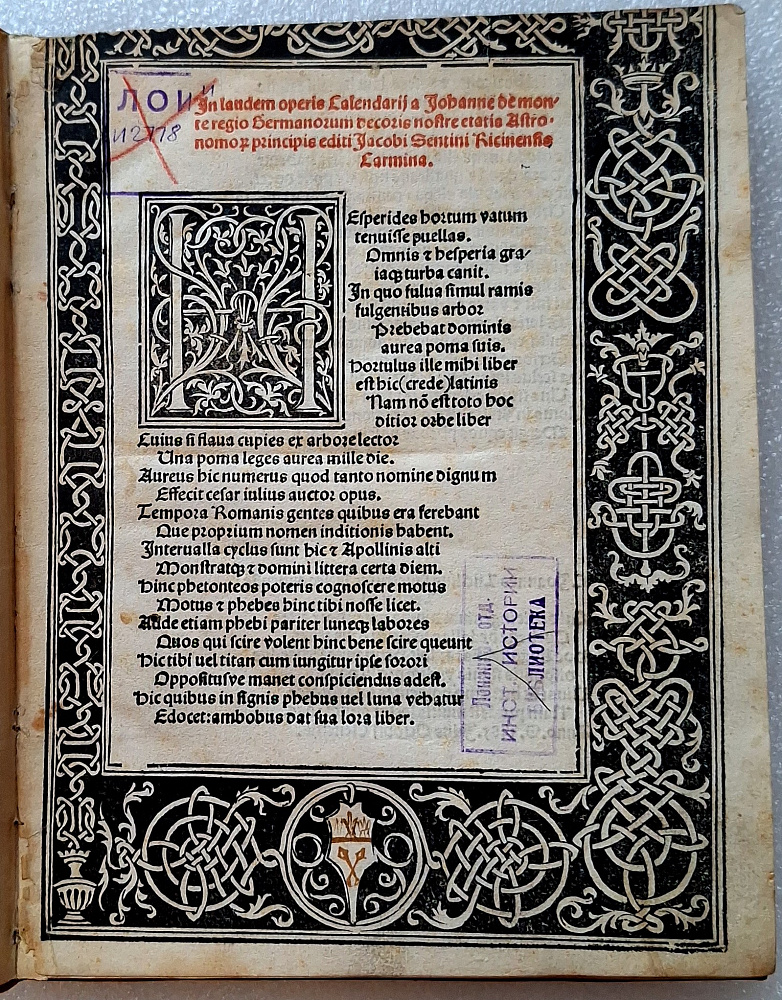 ЛОИИ
И 2778
In laudem operis Calendarij a Johanne de mon-
te regio Germanorum decoris nostre etatis Astro-
nomoꝝ principis editi Jacobi Sentini Ricinensis
Carmina.
HEsperides hortum vatum
tenuisse puellas.
Omnis ⁊ hesperia gra/
iaqꝫ turba canit.
In quo fulua simul ramis
fulgentibus arbor
Prebebat dominis
aurea poma suis.
Hortulus ille mihi liber
est hic (crede) latinis
Nam nō est toto hoc
ditior orbe liber
Cuius si flaua cupies ex arbore lector
Una poma leges aurea mille die.
Aureus hic numerus quod tanto nomine dignum
Effecit cesar iulius auctor opus.
Tempora Romanis gentes quibus era ferebant
Que proprium nomen inditionis habent.
Interualla cyclus sunt hic ⁊ Apollinis alti
Monstratqꝫ ⁊ domini littera certa diem.
Hinc phetonteos poteris cognoscere motus
Motus ⁊ phebes hinc tibi nosse licet.
Adde etiam phebi pariter luneqꝫ labores
Quos qui scire volent hinc bene scire queunt
Hic tibi uel titan cum iungitur ipse sorori
Oppositusve manet conspiciendus adest.
Hic quibus in signis phebus uel luna vehatur
Edocet: ambobus dat sua lora liber.
ОТД.
ИНСТ. ИСТОРИИ
БЛИОТЕКА